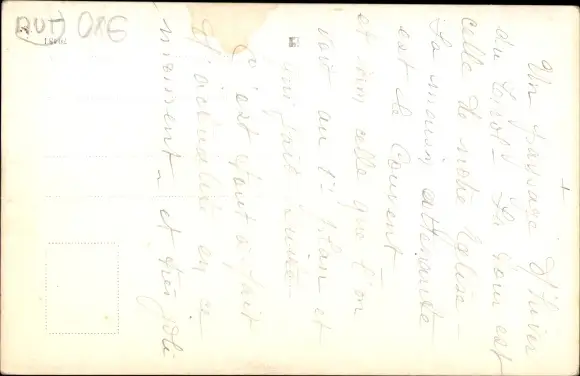 Un passage d'hiver
du Tirol. La Tour est
celle de notre Eglise -
La maison attenante
est le Couvent -
et non celle que l'on
voit au 1er plan et
qui fait
C'est tout à fait
d'actualité en ce
moment - et très joli
AUT 016